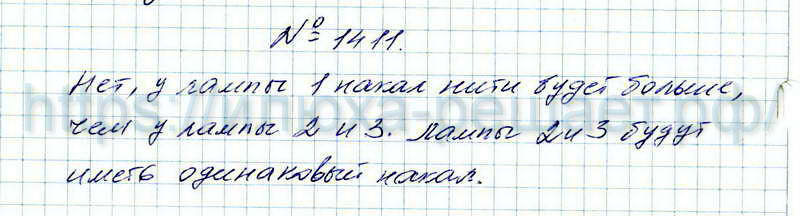 № 1411.
Нет, у лампы 1 накал нити будет больше,
чем у лампы 2 и 3. Лампы 2 и 3 будут
иметь одинаковый накал.